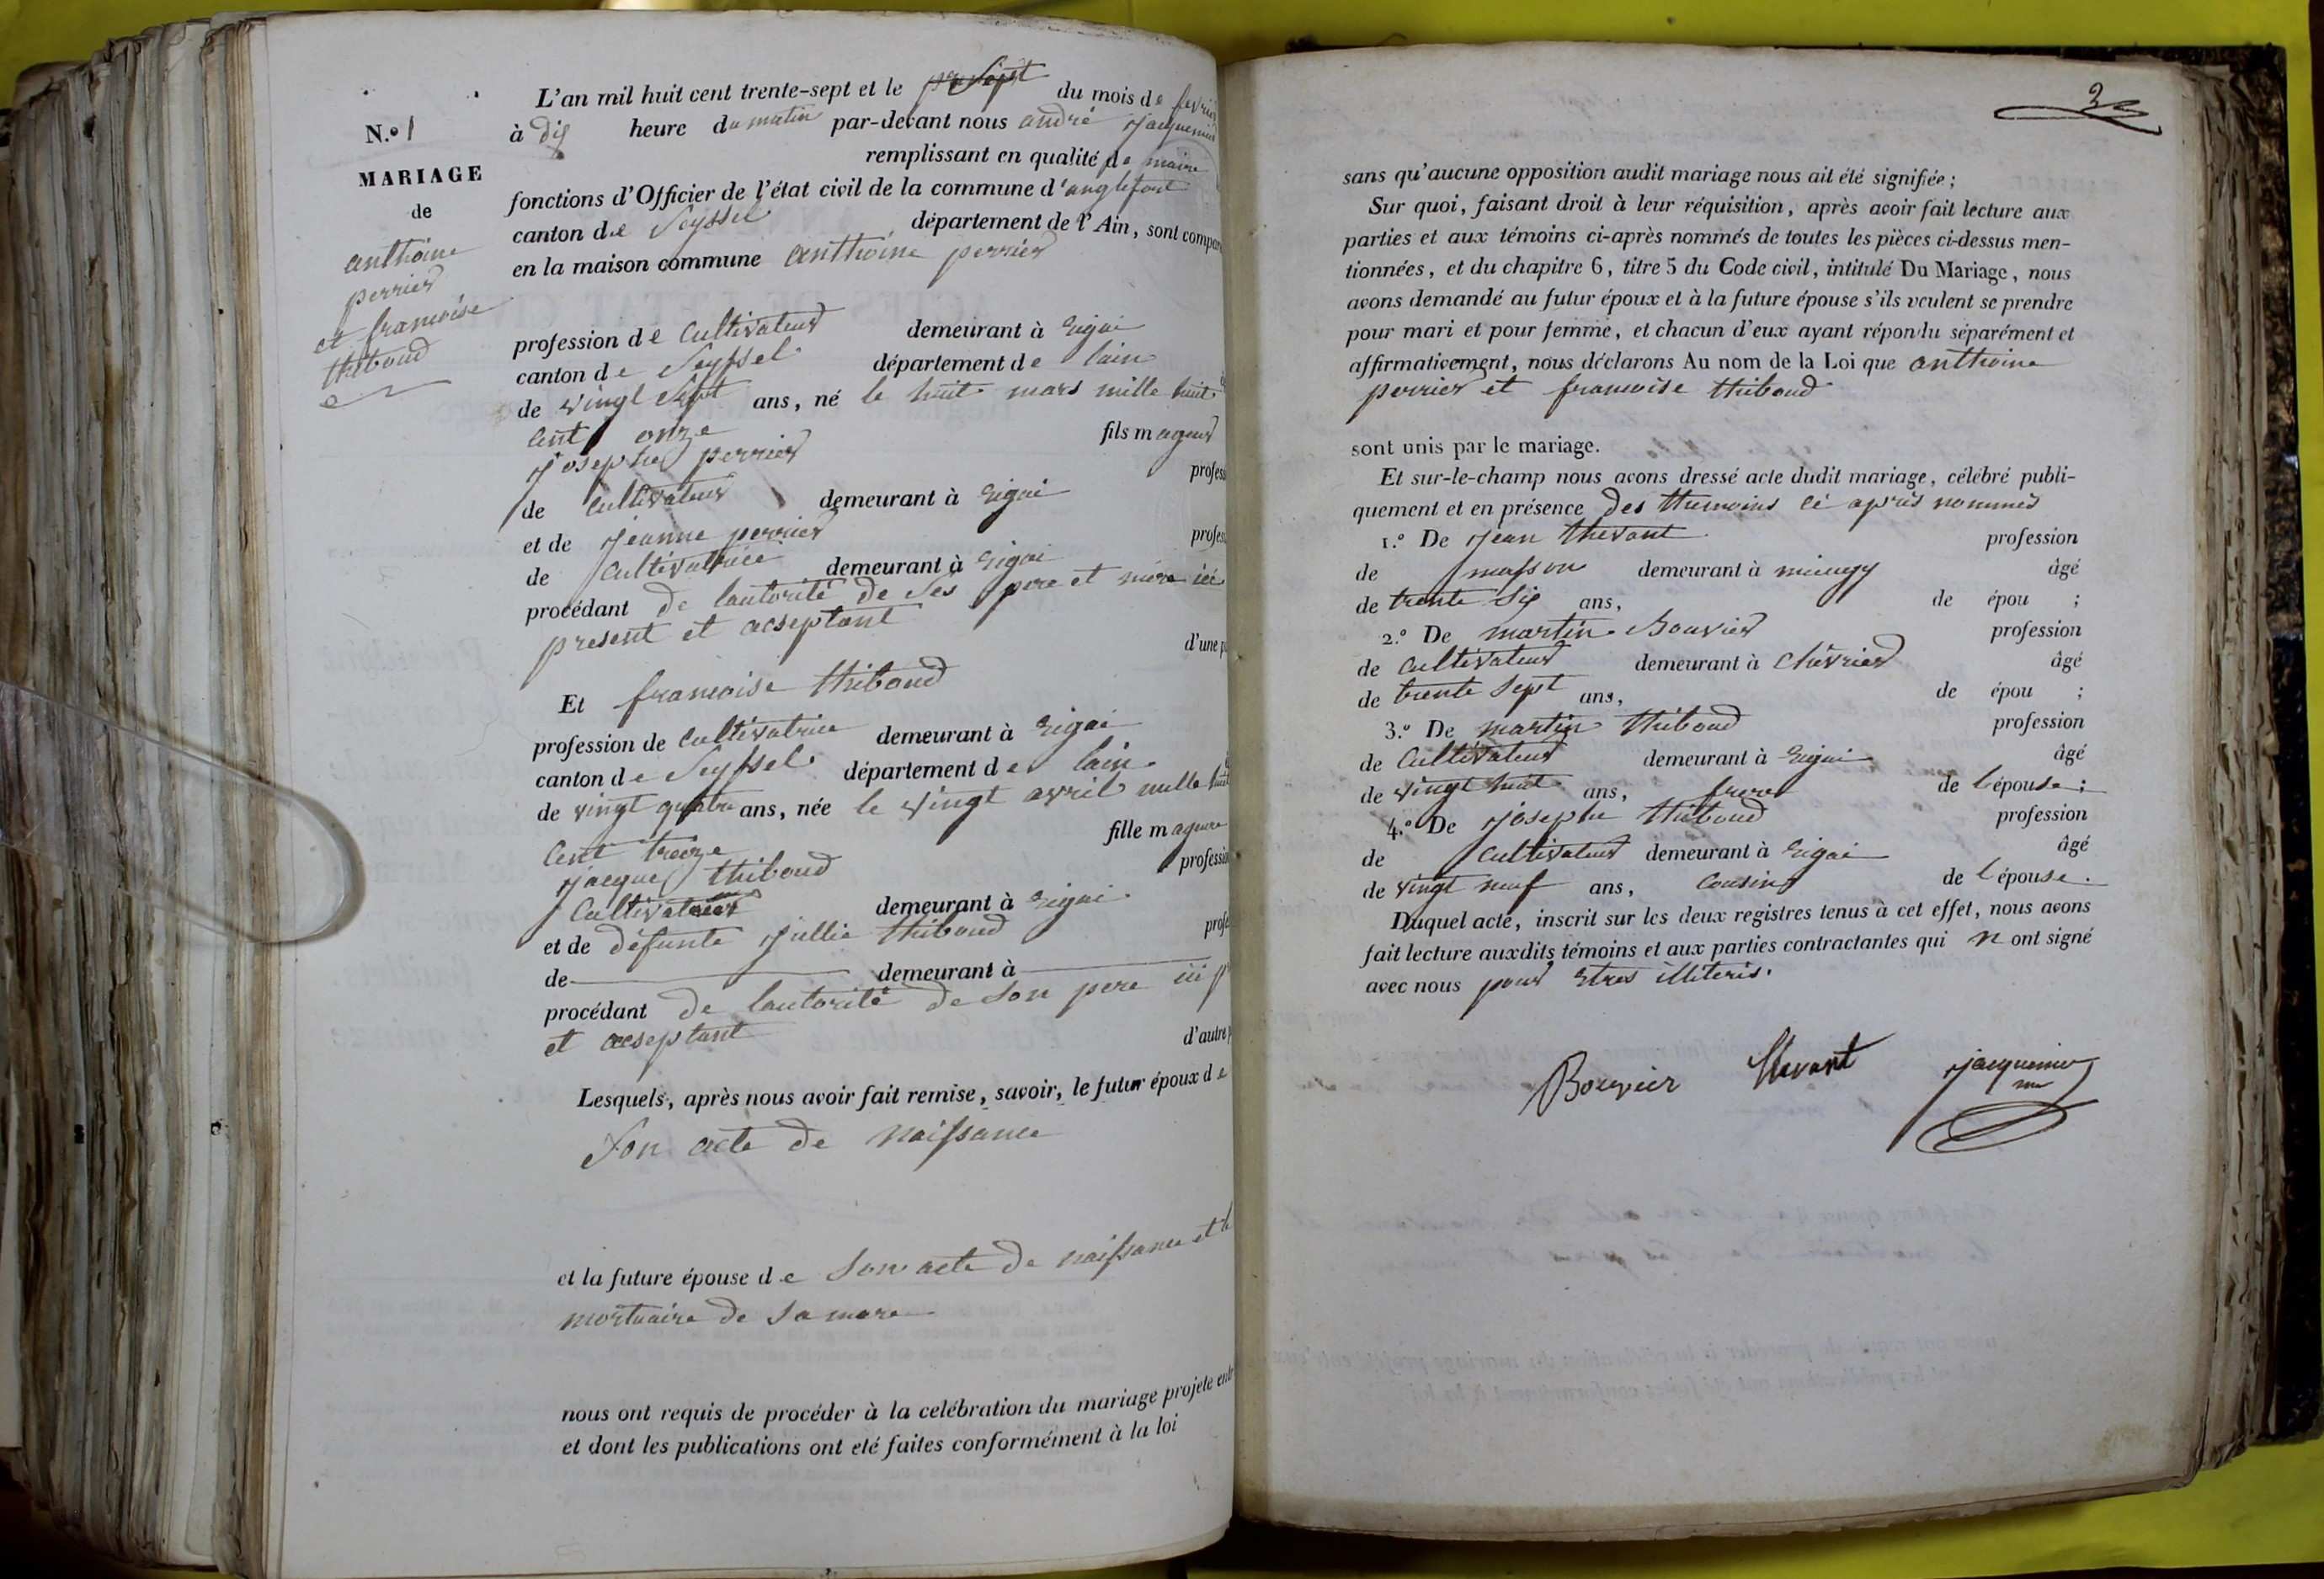 N.º 1
MARIAGE
de
anthoine
perrier
et francoise
thiboud
L'an mil huit cent trente-sept et le sept du mois de fevrier
à dix heure du matin par-devant nous andré jacquemier
remplissant en qualité de maire
fonctions d'Officier de l'état civil de la commune d'anglefort
canton de Seyssel département de l'Ain, sont compar
en la maison commune anthoine perrier
profession de Cultivateur demeurant à Eigai
canton de Seyssel département de lain
de vingt Sept ans, né le huit mars mille huit
Cent onze fils mageur
josephe perrier profess
de Cultivateur demeurant à Eigai
et de jeanne perrier profes
de Cultivatrice demeurant à Eigai
procédant de lautorité de Ses pere et mére ici
present et acseptant
d'une p
Et francoise thiboud
profession de Cultivatrice demeurant à Eigai
canton de Seyssel département de lain
de vingt quatre ans, née le vingt avril mille huit
Cent treize fille mageure
jacque thiboud profession
Cultivateur demeurant à Eigai
et de défunte jullie thiboud profe
de demeurant à
procédant de lautorité de Son pere ici p
et acseptant d'autre p
Lesquels, après nous avoir fait remise, savoir, le futur époux de
Son acte de naissance
et la future épouse de Son acte de naissance et l
mortuaire de Sa mere
nous ont requis de procéder à la celébration du mariage projeté entr
et dont les publications ont eté faites conformément à la loi
2
sans qu'aucune opposition audit mariage nous ait été signifiée;
Sur quoi, faisant droit à leur réquisition, après avoir fait lecture aux
parties et aux témoins ci-après nommés de toutes les pièces ci-dessus men-
tionnées, et du chapitre 6, titre 5 du Code civil, intitulé Du Mariage, nous
avons demandé au futur époux et à la future épouse s'ils veulent se prendre
pour mari et pour femme, et chacun d'eux ayant répondu séparément et
affirmativement, nous déclarons Au nom de la Loi que anthoine
perrier et francoise thiboud
sont unis par le mariage.
Et sur-le-champ nous avons dressé acte dudit mariage, célébré publi-
quement et en présence des themoins ci après nommés
1.º De jean thevant profession
de masson demeurant à mieugy âgé
de trente Six ans, de épou ;
2.º De martin Bouvier profession
de Cultivateur demeurant à Chévrier âgé
de trente Sept ans, de épou ;
3.º De martin thiboud profession
de Cultivateur demeurant à Eigai âgé
de vingt huit ans, frere de l'épouse ;
4.º De josephe thiboud profession
de Cultivateur demeurant à Eigai âgé
de vingt neuf ans, Cousin de l'épouse.
Duquel acte, inscrit sur les deux registres tenus à cet effet, nous avons
fait lecture auxdits témoins et aux parties contractantes qui n ont signé
avec nous pour Etres illiteris.
Bouvier thevant jacquemier